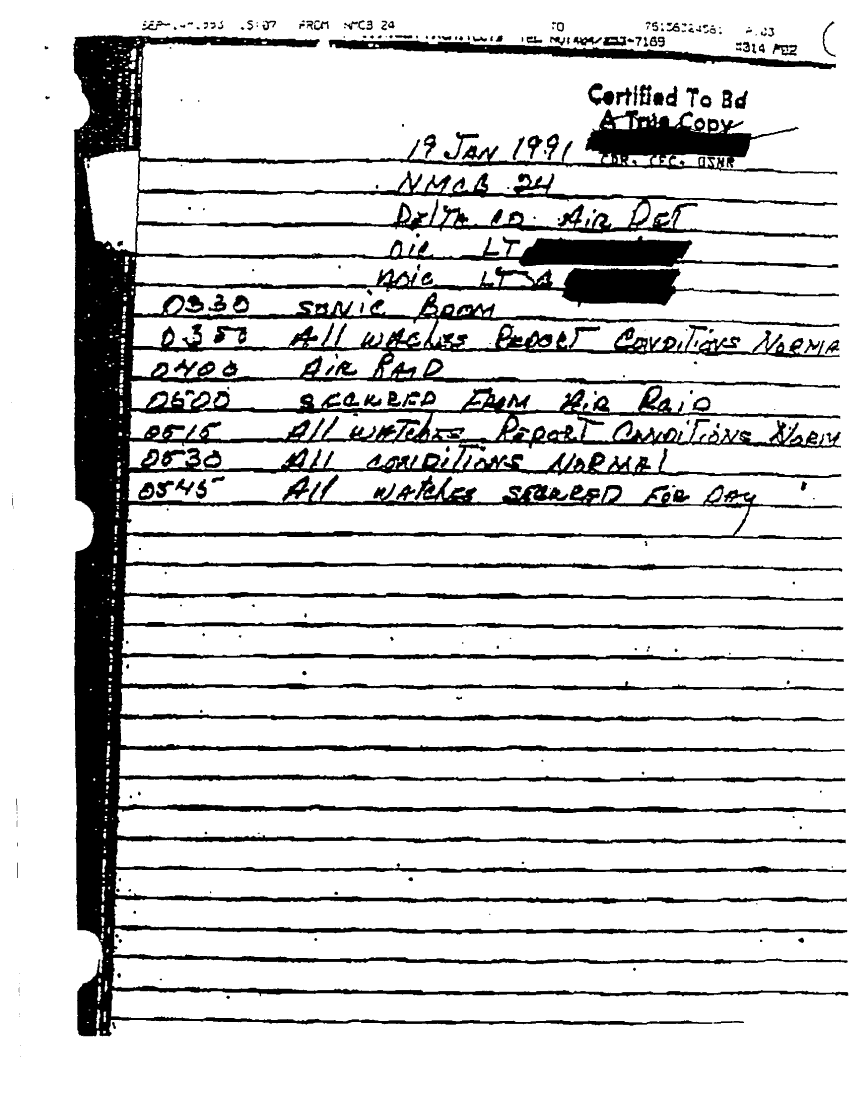 FROM NMCB 24 TO P.03
7189 #314 P02
Certified To Be
A True Copy
CDR, CEC, USNR
19 JAN 1991
NMCB 24
DELTA CO. AIR DET
OIC LT
AOIC LTJG
0330 SONIC BOOM
0350 All WATCHES REPORT CONDITIONS NORMA
0400 AIR RAID
0500 SECURED FROM AIR RAID
0515 All WATCHES REPORT CONDITIONS NORM
0530 All CONDITIONS NORMAL
0545 All WATCHES SECURED FOR DAY